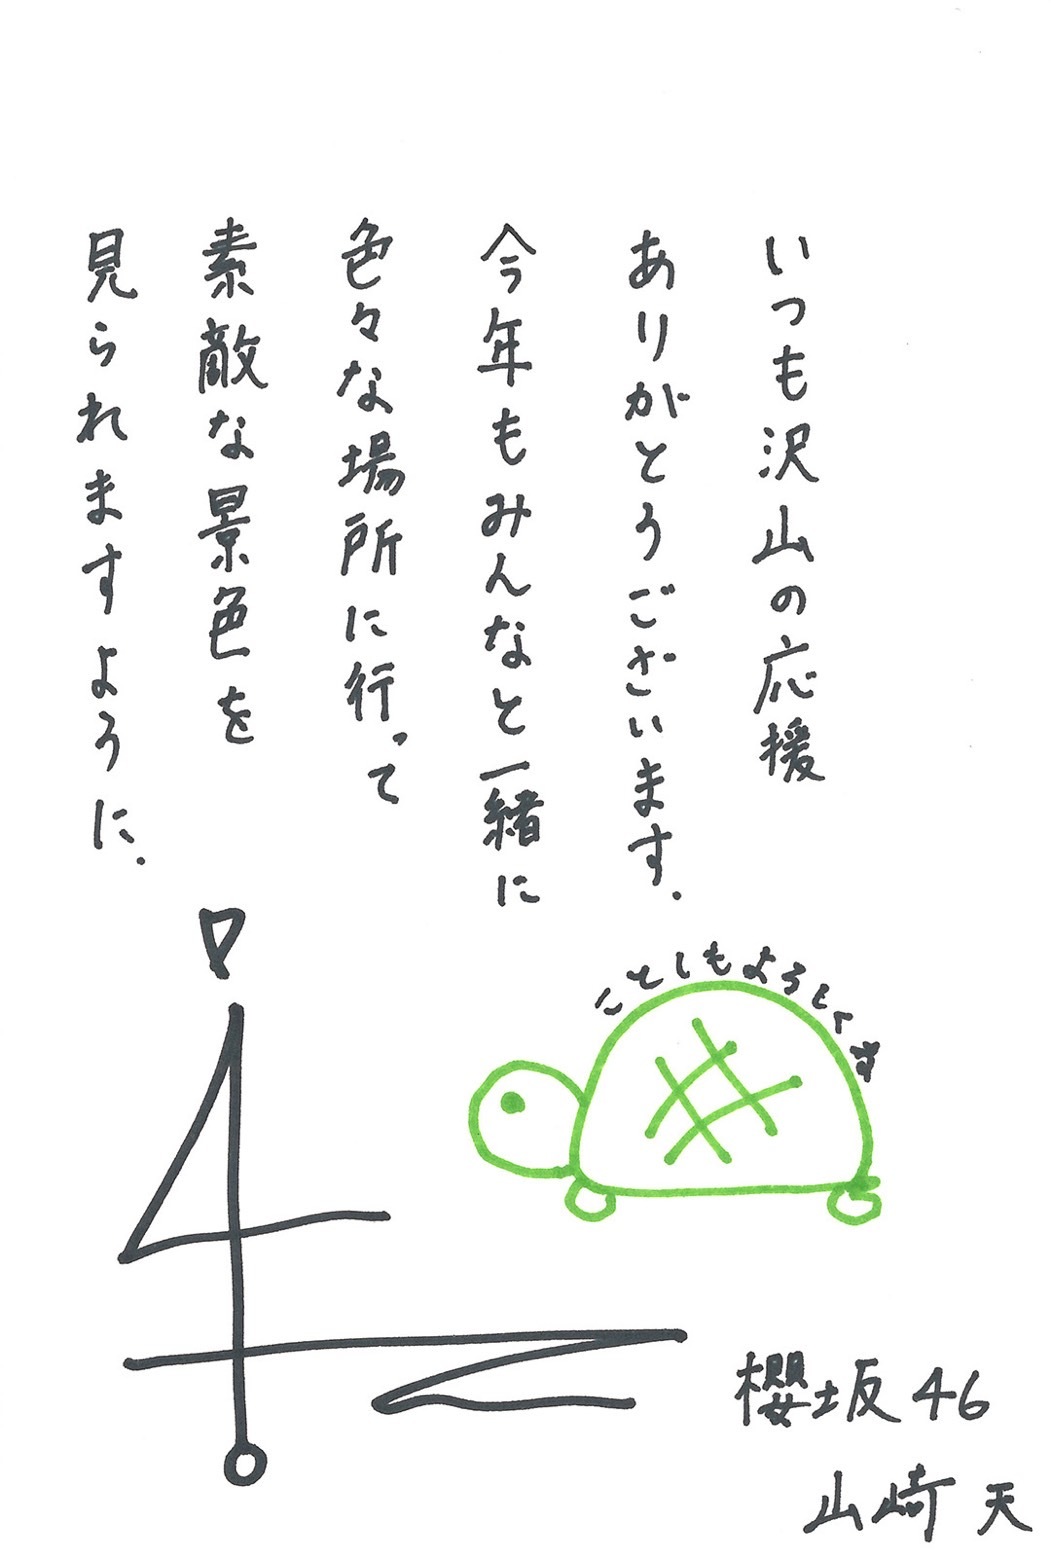 いつも沢山の応援
ありがとうございます.
今年もみんなと一緒に
色々な場所に行って
素敵な景色を
見られますように.
ことしもよろしくです
櫻坂46
山﨑 天